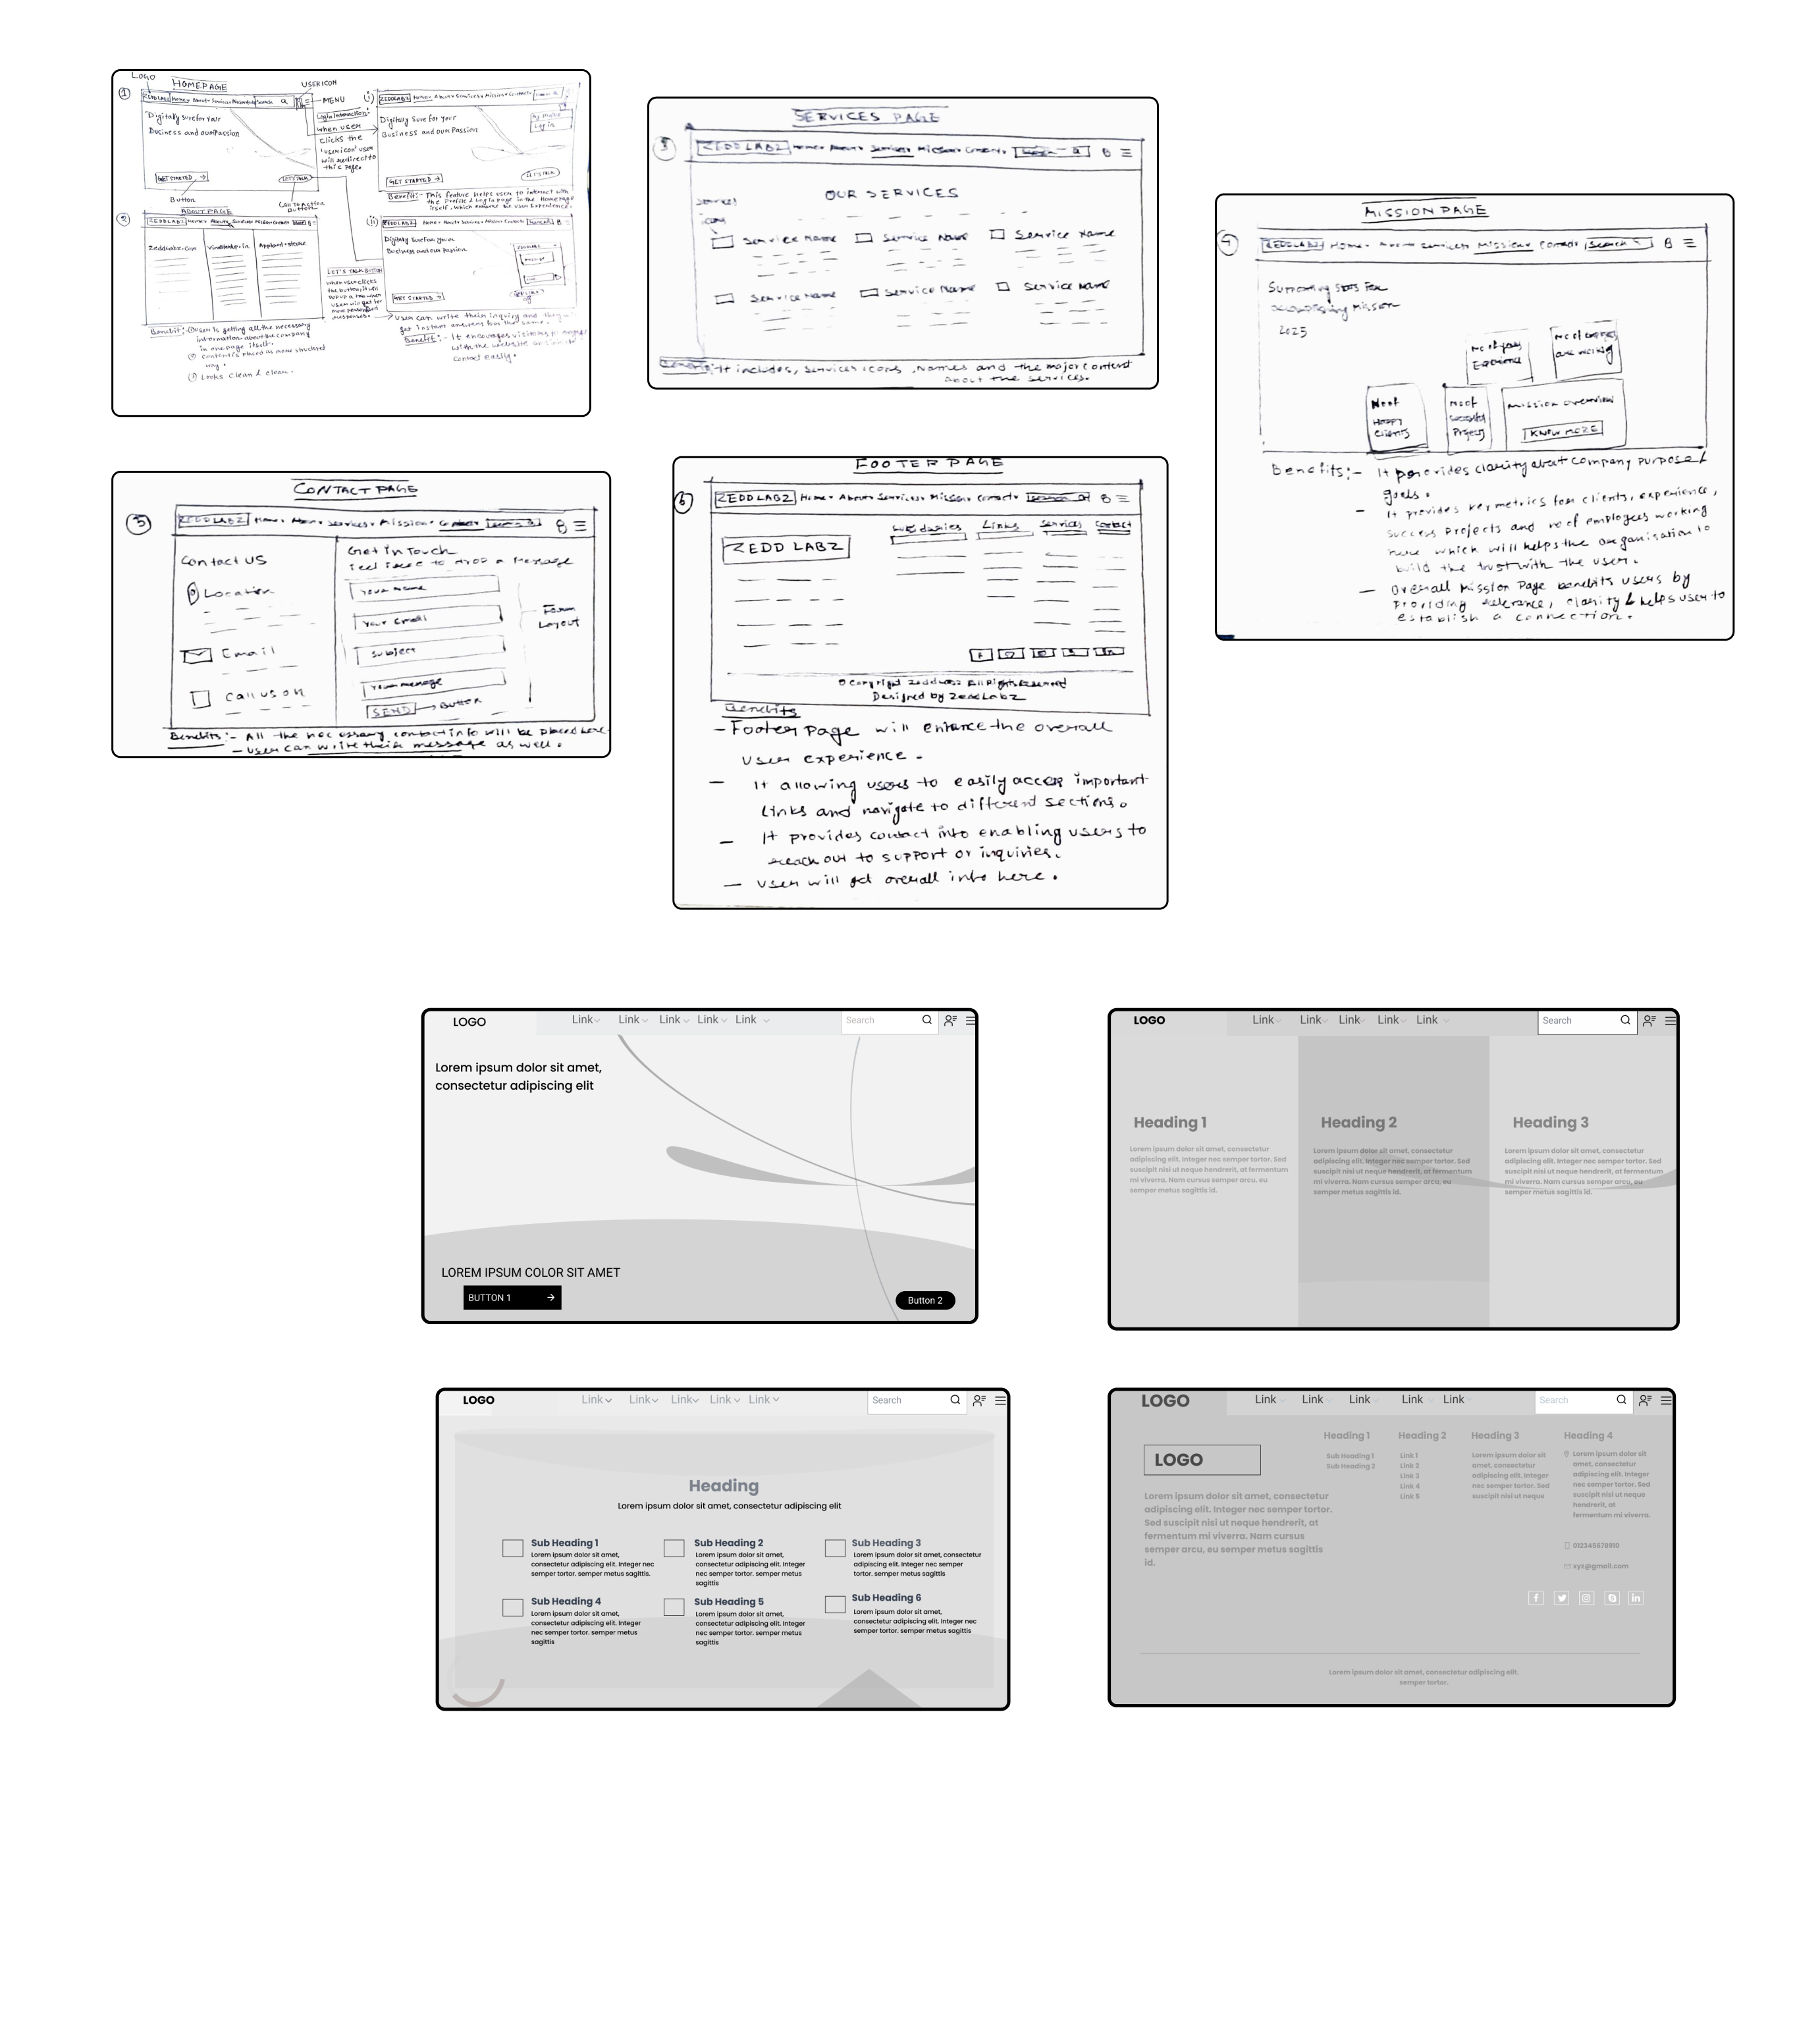 LOGO
HOMEPAGE
USER ICON
MENU
①
ZEDDLABZ Home About Services Search
Digitally Sure for Your
Business and our Passion
GET STARTED →
LET'S TALK
Button
Login Interaction:
when user
clicks the
'user icon' user
will redirect to
this page.
(i)
ZEDDLABZ Home About Services Mission Contact
Digitally Sure for Your
Business and our Passion
My Profile
Log in
GET STARTED →
LET'S TALK
Benefit:- This feature helps user to interact with
the Profile & Log in page in the Homepage
itself, which enhance the user Experience.
②
ABOUT PAGE
ZEDDLABZ Home About Services Mission Contact
Zeddlabz.com
LET'S TALK BUTTON
when user clicks
Benefit:- ① User is getting all the necessary
information about the company
in one page itself.
② Content is placed in more structured
way.
③ Looks Clean & clear.
(ii)
ZEDDLABZ Home About Services Mission Contact
Digitally Sure for Your
Business and our Passion
GET STARTED →
User can write their inquiry and they
get instant answers for the same.
Benefit:- It encourages visitors to engage
with the website
contact easily.
SERVICES PAGE
3
ZEDD LABZ Home About Services Mission Contact
OUR SERVICES
Services
icon
Service Name Service Name Service Name
Service Name Service Name Service Name
It includes, Services icons, Names and the major content
about the services.
MISSION PAGE
4
ZEDDLABZ Home About Services Mission Contact Search
Supporting Stats For
Mission
2025
No of years
Experience
No of employees
are working
No of
HAPPY
Clients
No of
Successful
Projects
Mission overview
KNOW MORE
Benefits:- It provides clarity about company purpose &
goals.
- It provides key metrics for clients, experience,
success projects and no of employees working
here which will helps the organisation to
build the trust with the user.
- Overall Mission Page benefits users by
Providing relevance, clarity & helps user to
establish a connection.
CONTACT PAGE
5
ZEDDLABZ Home About Services Mission Contact
Contact US
Location
Email
Call us on
Get in Touch
Feel free to drop a Message
Your name
Your Email
Subject
Your message
SEND → Button
Form
Layout
Benefits:- All the necessary contact info will be placed here.
- User can write their message as well.
FOOTER PAGE
6
ZEDDLABZ Home About Services Mission Contact
ZEDD LABZ
Subsidiaries Links Services Contact
© Copyright ZeddLabz All Rights Reserved
Designed by ZeddLabz
Benefits
- Footer Page will enhance the overall
user experience.
- It allowing users to easily access important
links and navigate to different sections.
- It provides contact info enabling users to
reach out to support or inquiries.
- User will get overall info here.
LOGO Link Link Link Link Link Search
Lorem ipsum dolor sit amet,
consectetur adipiscing elit
LOREM IPSUM COLOR SIT AMET
BUTTON 1 →
Button 2
LOGO Link Link Link Link Link Search
Heading 1
Lorem ipsum dolor sit amet, consectetur
adipiscing elit. Integer nec semper tortor. Sed
suscipit nisi ut neque hendrerit, at fermentum
mi viverra. Nam cursus semper arcu, eu
semper metus sagittis id.
Heading 2
Lorem ipsum dolor sit amet, consectetur
adipiscing elit. Integer nec semper tortor. Sed
suscipit nisi ut neque hendrerit, at fermentum
mi viverra. Nam cursus semper arcu, eu
semper metus sagittis id.
Heading 3
Lorem ipsum dolor sit amet, consectetur
adipiscing elit. Integer nec semper tortor. Sed
suscipit nisi ut neque hendrerit, at fermentum
mi viverra. Nam cursus semper arcu, eu
semper metus sagittis id.
LOGO Link Link Link Link Link Search
Heading
Lorem ipsum dolor sit amet, consectetur adipiscing elit
Sub Heading 1
Lorem ipsum dolor sit amet,
consectetur adipiscing elit. Integer nec
semper tortor. semper metus sagittis.
Sub Heading 2
Lorem ipsum dolor sit amet,
consectetur adipiscing elit. Integer
nec semper tortor. semper metus
sagittis
Sub Heading 3
Lorem ipsum dolor sit amet, consectetur
adipiscing elit. Integer nec semper
tortor. semper metus sagittis
Sub Heading 4
Lorem ipsum dolor sit amet,
consectetur adipiscing elit. Integer
nec semper tortor. semper metus
sagittis
Sub Heading 5
Lorem ipsum dolor sit amet,
consectetur adipiscing elit. Integer
nec semper tortor. semper metus
sagittis
Sub Heading 6
Lorem ipsum dolor sit amet,
consectetur adipiscing elit. Integer nec
semper tortor. semper metus sagittis
LOGO Link Link Link Link Link Search
LOGO
Lorem ipsum dolor sit amet, consectetur
adipiscing elit. Integer nec semper tortor.
Sed suscipit nisi ut neque hendrerit, at
fermentum mi viverra. Nam cursus
semper arcu, eu semper metus sagittis
id.
Heading 1
Sub Heading 1
Sub Heading 2
Heading 2
Link 1
Link 2
Link 3
Link 4
Link 5
Heading 3
Lorem ipsum dolor sit
amet, consectetur
adipiscing elit. Integer
nec semper tortor. Sed
suscipit nisi ut neque
Heading 4
Lorem ipsum dolor sit
amet, consectetur
adipiscing elit. Integer
nec semper tortor. Sed
suscipit nisi ut neque
hendrerit, at
fermentum mi viverra.
012345678910
xyz@gmail.com
Lorem ipsum dolor sit amet, consectetur adipiscing elit.
semper tortor.